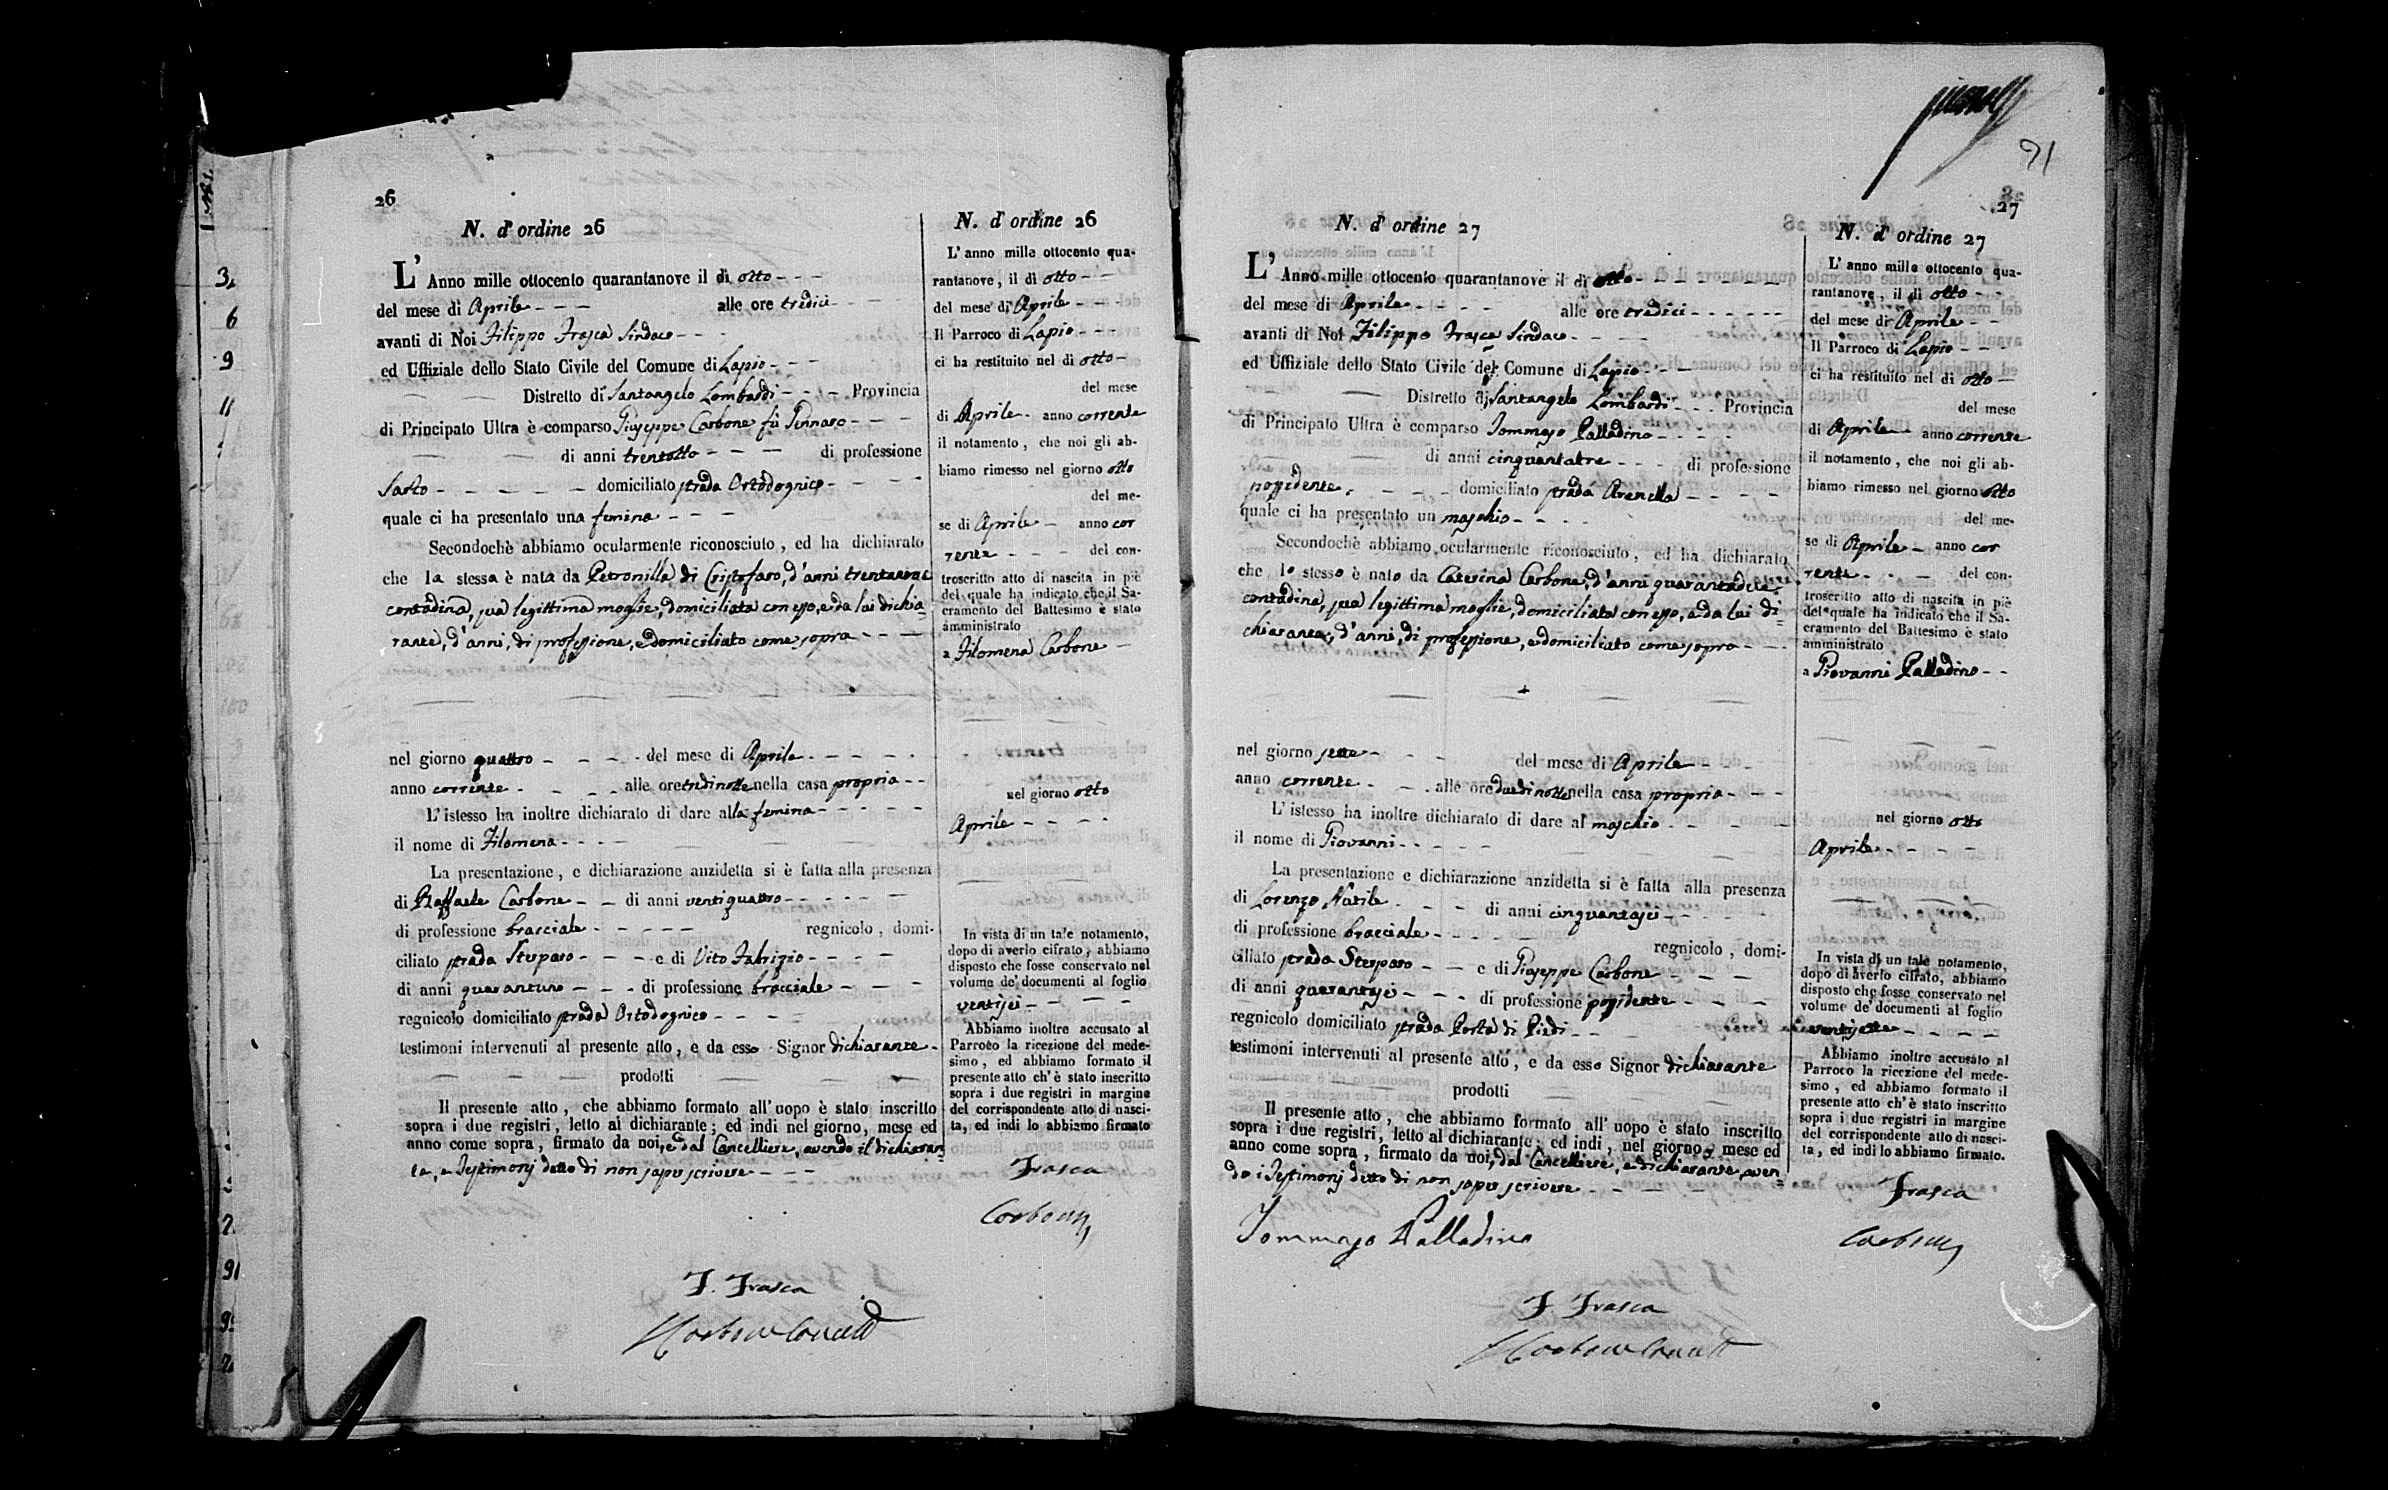 26
N. d'ordine 26
L' Anno mille ottocento quarantanove il dì otto
del mese di Aprile alle ore tredici
avanti di Noi Filippo Frasca Sindaco
ed Uffiziale dello Stato Civile del Comune di Lapio
Distretto di Santangelo Lombardi Provincia
di Principato Ultra è comparso Giuseppe Carbone fù Gennaro
di anni trentotto di professione
Sarto domiciliato strada Ortodognico
quale ci ha presentato una femina
Secondochè abbiamo ocularmente riconosciuto, ed ha dichiarato
che la stessa è nata da Petronilla di Cristofaro, d'anni trentanove
contadina, sua legittima moglie, domiciliata con esso, e da lui dichia=
rante, d'anni, di professione, e domiciliato come sopra
nel giorno quattro del mese di Aprile
anno corrente alle ore tre di notte nella casa propria
L'istesso ha inoltre dichiarato di dare alla femina
il nome di Filomena
La presentazione, e dichiarazione anzidetta si è fatta alla presenza
di Raffaele Carbone di anni ventiquattro
di professione bracciale regnicolo, domi-
ciliato strada Sterparo e di Vito Fabrizio
di anni quarantuno di professione bracciale
regnicolo domiciliato strada Ortodognico
testimoni intervenuti al presente atto, e da esso Signor dichiarante
prodotti
Il presente atto, che abbiamo formato all'uopo è stato inscritto
sopra i due registri, letto al dichiarante; ed indi nel giorno, mese ed
anno come sopra, firmato da noi, e dal Cancelliere, avendo il dichiaran=
te, e Testimonj detto di non saper scrivere
F. Frasca
N. d'ordine 26
L'anno mille ottocento qua-
rantanove, il dì otto
del mese di Aprile
Il Parroco di Lapio
ci ha restituito nel dì otto
del mese
di Aprile anno corrente
il notamento, che noi gli ab-
biamo rimesso nel giorno otto
del me-
se di Aprile anno cor
rente del con-
troscritto atto di nascita in piè
del quale ha indicato che il Sa-
cramento del Battesimo è stato
amministrato
a Filomena Carbone
nel giorno otto
Aprile
In vista di un tale notamento,
dopo di averlo cifrato, abbiamo
disposto che fosse conservato nel
volume de' documenti al foglio
ventisei
Abbiamo inoltre accusato al
Parroco la ricezione del mede-
simo, ed abbiamo formato il
presente atto ch'è stato inscritto
sopra i due registri in margine
del corrispondente atto di nasci-
ta, ed indi lo abbiamo firmato
Frasca
Carbone
91
27
N. d'ordine 27
L' Anno mille ottocento quarantanove il dì otto
del mese di Aprile alle ore tredici
avanti di Noi Filippo Frasca Sindaco
ed Uffiziale dello Stato Civile del Comune di Lapio
Distretto di Santangelo Lombardi Provincia
di Principato Ultra è comparso Tommaso Palladino
di anni cinquantatre di professione
possidente domiciliato strada Arenella
quale ci ha presentato un maschio
Secondochè abbiamo ocularmente riconosciuto, ed ha dichiarato
che lo stesso è nato da Caterina Carbone, d'anni quarantadue
contadina, sua legittima moglie, domiciliata con esso, e da lui di=
chiarante, d'anni, di professione, e domiciliato come sopra
nel giorno sette del mese di Aprile
anno corrente alle ore due di notte nella casa propria
L'istesso ha inoltre dichiarato di dare al maschio
il nome di Giovanni
La presentazione e dichiarazione anzidetta si è fatta alla presenza
di Lorenzo Natile di anni cinquantasei
di professione bracciale regnicolo, domi-
ciliato strada Sterparo e di Giuseppe Carbone
di anni quarantasei di professione possidente
regnicolo domiciliato strada Porta di Piedi
testimoni intervenuti al presente atto, e da esso Signor dichiarante
prodotti
Il presente atto, che abbiamo formato all'uopo è stato inscritto
sopra i due registri, letto al dichiarante; ed indi, nel giorno, mese ed
anno come sopra, firmato da noi, dal Cancelliere, e dichiarante, aven=
do i Testimonj detto di non saper scrivere
Tommaso Palladino
F. Frasca
N. d'ordine 27
L'anno mille ottocento qua-
rantanove, il dì otto
del mese di Aprile
Il Parroco di Lapio
ci ha restituito nel dì otto
del mese
di Aprile anno corrente
il notamento, che noi gli ab-
biamo rimesso nel giorno otto
del me-
se di Aprile anno cor
rente del con-
troscritto atto di nascita in piè
del quale ha indicato che il Sa-
cramento del Battesimo è stato
amministrato
a Giovanni Palladino
nel giorno otto
Aprile
In vista di un tale notamento,
dopo di averlo cifrato, abbiamo
disposto che fosse conservato nel
volume de' documenti al foglio
ventisette
Abbiamo inoltre accusato al
Parroco la ricezione del mede-
simo, ed abbiamo formato il
presente atto ch'è stato inscritto
sopra i due registri in margine
del corrispondente atto di nasci-
ta, ed indi lo abbiamo firmato.
Frasca
Carbone